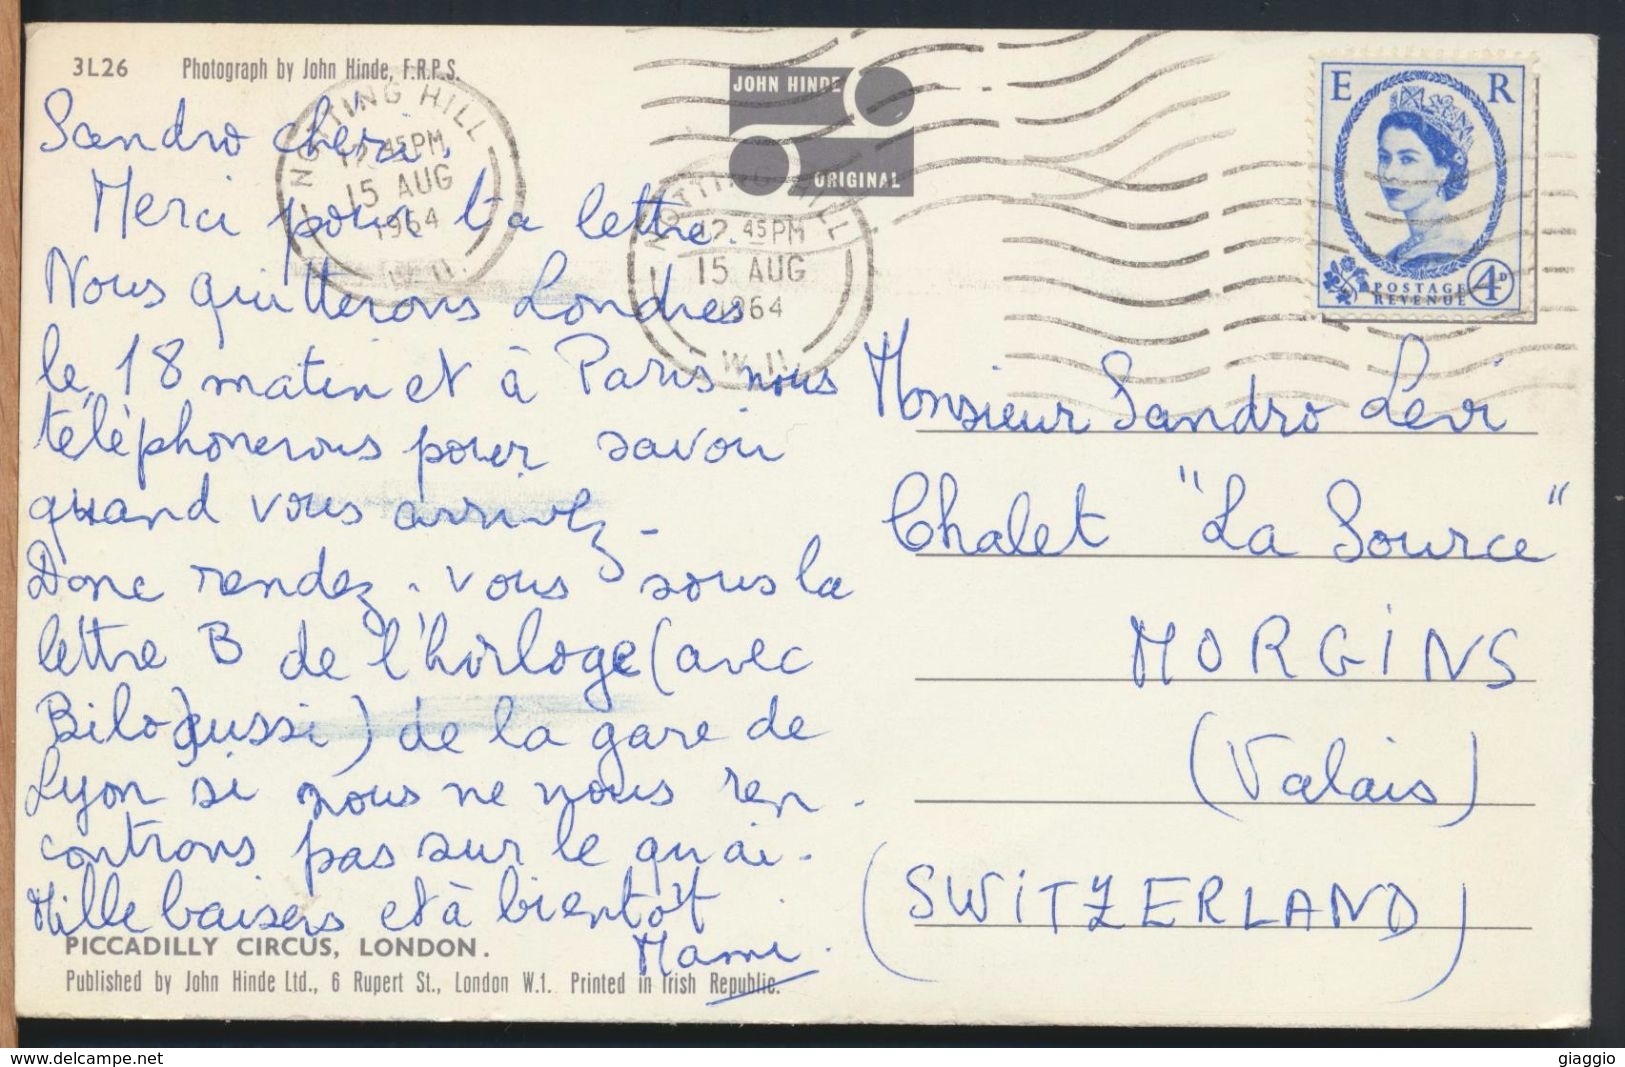 3L26 Photograph by John Hinde, F.R.P.S.
JOHN HINDE
ORIGINAL
NOTTING HILL
12.45PM
15 AUG
1964
W.11.
NOTTING HILL
12.45PM
15 AUG
1964
W.11.
E R
POSTAGE
REVENUE
4D
Sandro chéri,
Merci pour ta lettre.
Nous quitterons Londres
le 18 matin et à Paris nous
téléphonerons pour savoir
quand vous arrivez -
Donc rendez-vous sous la
lettre B de l'horloge (avec
Bilo aussi) de la gare de
Lyon si nous ne nous ren-
controns pas sur le quai.
Mille baisers et à bientôt
Mami.
Monsieur Sandro Levi
Chalet "La Source"
MORGINS
(Valais)
(SWITZERLAND)
PICCADILLY CIRCUS, LONDON.
Published by John Hinde Ltd., 6 Rupert St., London W.1. Printed in Irish Republic.
https://www.delcampe.net
giaggio